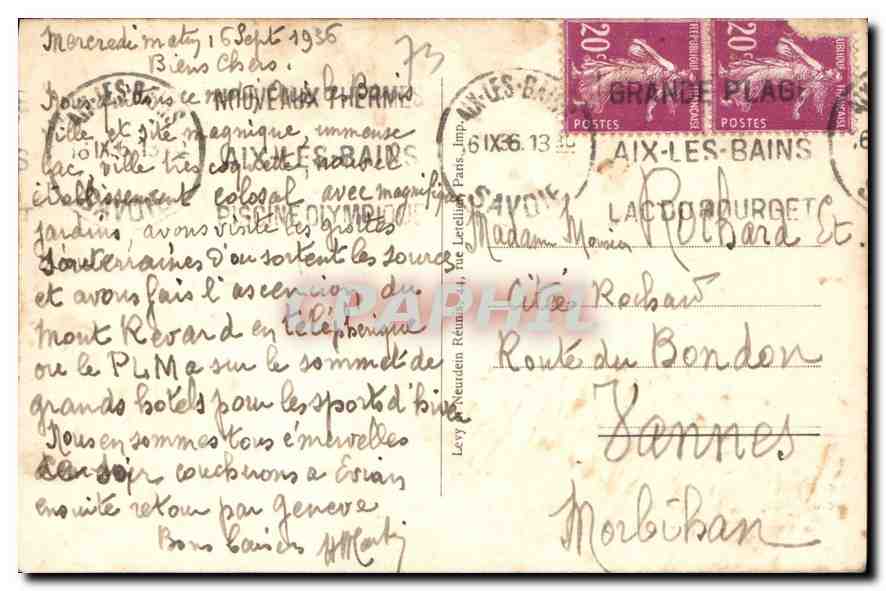 Mercredi matin 16 Sept 1936
Biens Chers.
73
Nous quittons ce matin Aix les Bains
ville et site magnique, immense
lac, ville très coquette, nouvel
établissement colosal avec magnifiques
jardins, avons visité les grottes
souterraines d'ou sortent les sources
et avons fais l'ascencion du
Mont Revard en téléphérique
ou le PLM a sur le sommet de
grands hotels pour les sports d'hiver
Nous en sommes tous émervelles
ce soir coucherons a Evian
ensuite retour par Geneve
Bons baisers HMartin
AIX-LES-BAINS
16 IX 36 13
SAVOIE
NOUVEAUX THERMES
AIX-LES-BAINS
PISCINE OLYMPIQUE
Levy & Neurdein Réunis, 44, rue Letellier, Paris, Imp.
AIX-LES-BAINS
16 IX 36. 13
SAVOIE
GRANDE PLAGE
AIX-LES-BAINS
LAC DU BOURGET
20c
REPUBLIQUE FRANÇAISE
POSTES
20c
UBLIQUE FRANÇAISE
POSTES
Madame Monsieur Rochard Et.
Cité Rochard
Route du Bondon
Vannes
Morbihan
PAPHIL